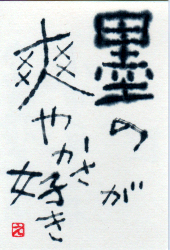 墨の
爽やかさ
が
好き